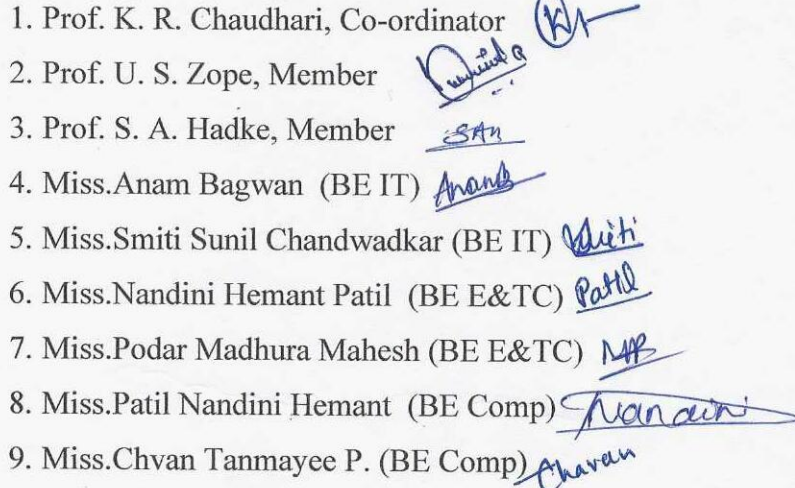 1. Prof. K. R. Chaudhari, Co-ordinator
2. Prof. U. S. Zope, Member
3. Prof. S. A. Hadke, Member SAH
4. Miss.Anam Bagwan (BE IT) Anamb
5. Miss.Smiti Sunil Chandwadkar (BE IT)
6. Miss.Nandini Hemant Patil (BE E&TC) Patil
7. Miss.Podar Madhura Mahesh (BE E&TC)
8. Miss.Patil Nandini Hemant (BE Comp) Nandini
9. Miss.Chvan Tanmayee P. (BE Comp) Chavan